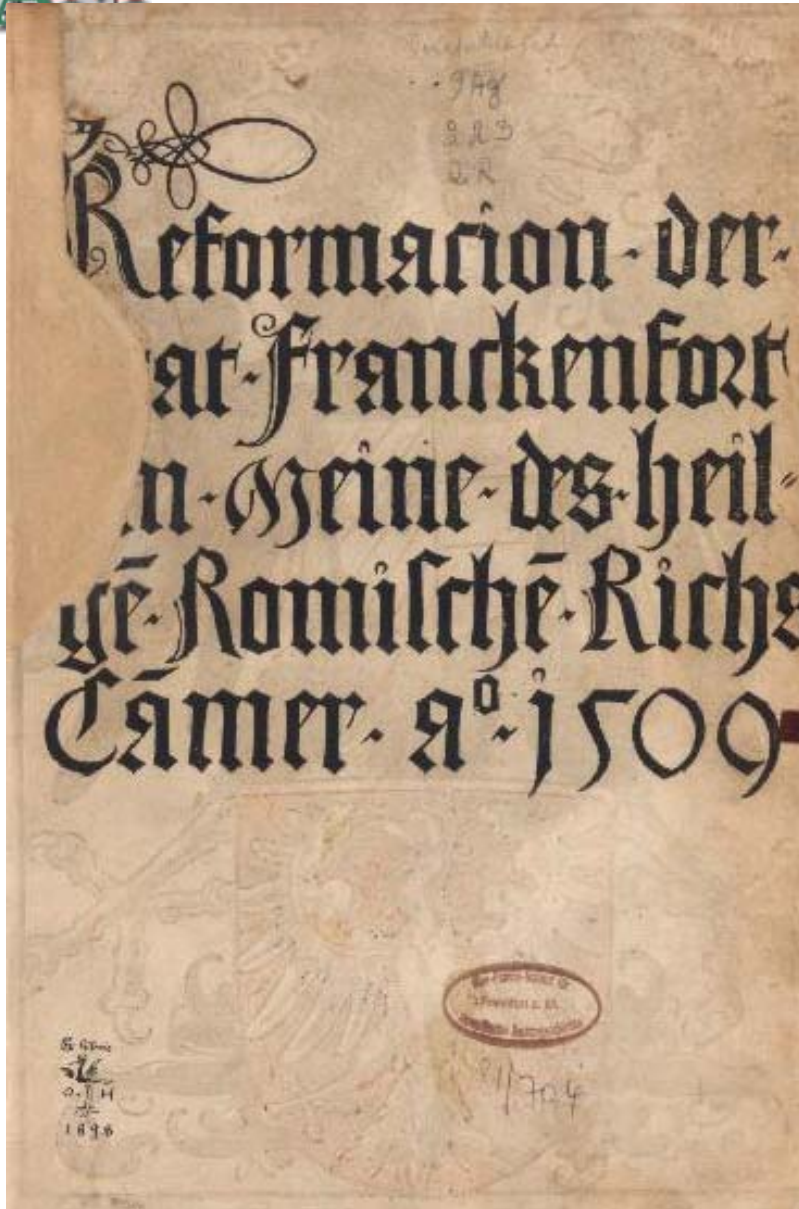 9Ag
223
2R
Reformacion · der ·
at · Franckenfort
n · Meine · des · heil ·
gē · Romischē · Richs
Cāmer · aº · 1509
O. H
1898
81/704